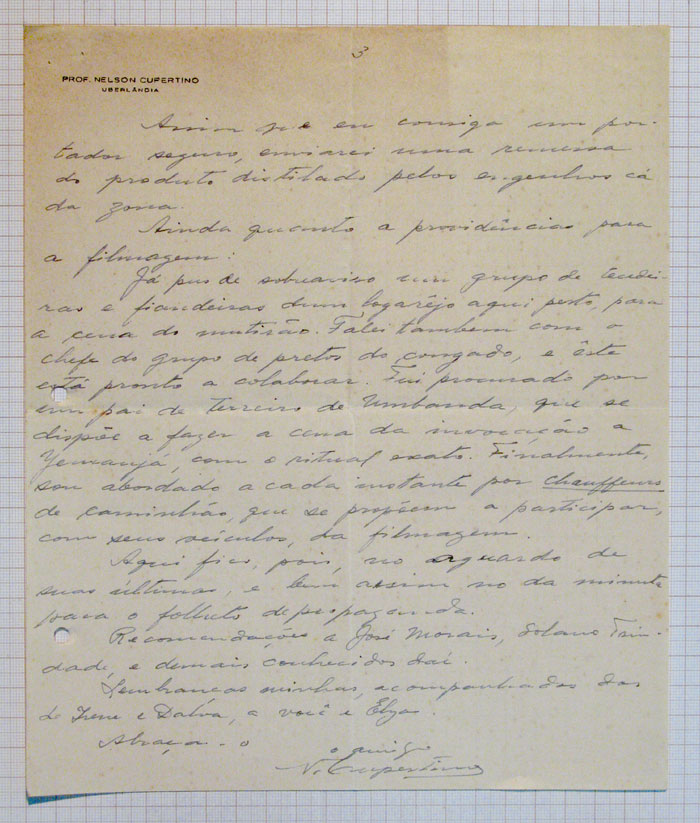 3
PROF. NELSON CUPERTINO
UBERLÂNDIA
Assim que eu consiga um por-
tador seguro, enviarei uma remessa
do produto distilado pelos engenhos cá
da zona.
Ainda quanto a providências para
a filmagem:
Já pus de sobreaviso um grupo de tecedei-
ras e fiandeiras dum logarêjo aqui perto, para
a cena do mutirão. Falei tambem com o
chefe do grupo de pretos do congado, e êste
está pronto a colaborar. Fui procurado por
um pai de terreiro de Umbanda, que se
dispõe a fazer a cena da invocação a
Yemanjá, com o ritual exato. Finalmente,
sou abordado a cada instante por chauffeurs
de caminhão, que se propõem a participar,
com seus veículos, da filmagem.
Aqui fico, pois, no aguardo de
suas últimas, e bem assim no da minuta
para o folheto de propaganda.
Recomendações a José Morais, Solano Trin-
dade, e demais conhecidos daí.
Lembranças minhas, acompanhadas das
de Irene e Dalva, a você e Elza.
Abraça-o
o amigo
N. Cupertino